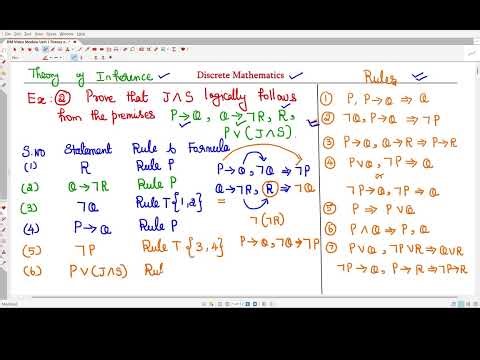 Theory of Inference Discrete Mathematics Rules
Ex: ② Prove that J∧S logically follows
from the premises P→Q, Q→¬R, R,
P∨(J∧S).
S.NO Statement Rule & Formula
(1) R Rule P P→Q, ¬Q ⇒ ¬P
(2) Q→¬R Rule P Q→¬R, R ⇒ ¬Q
(3) ¬Q Rule T{1,2} = ¬(¬R)
(4) P→Q Rule P
(5) ¬P Rule T {3,4} P→Q, ¬Q⇒¬P
(6) P∨(J∧S) Rul
① P, P→Q ⇒ Q
② ¬Q, P→Q ⇒ ¬P
③ P→Q, Q→R ⇒ P→R
④ P∨Q, ¬P ⇒ Q
or
¬P→Q, ¬P ⇒ Q
⑤ P ⇒ P∨Q
⑥ P∧Q ⇒ P, Q
⑦ P∨Q, ¬P∨R ⇒ Q∨R
¬P→Q, P→R ⇒ ¬P→R